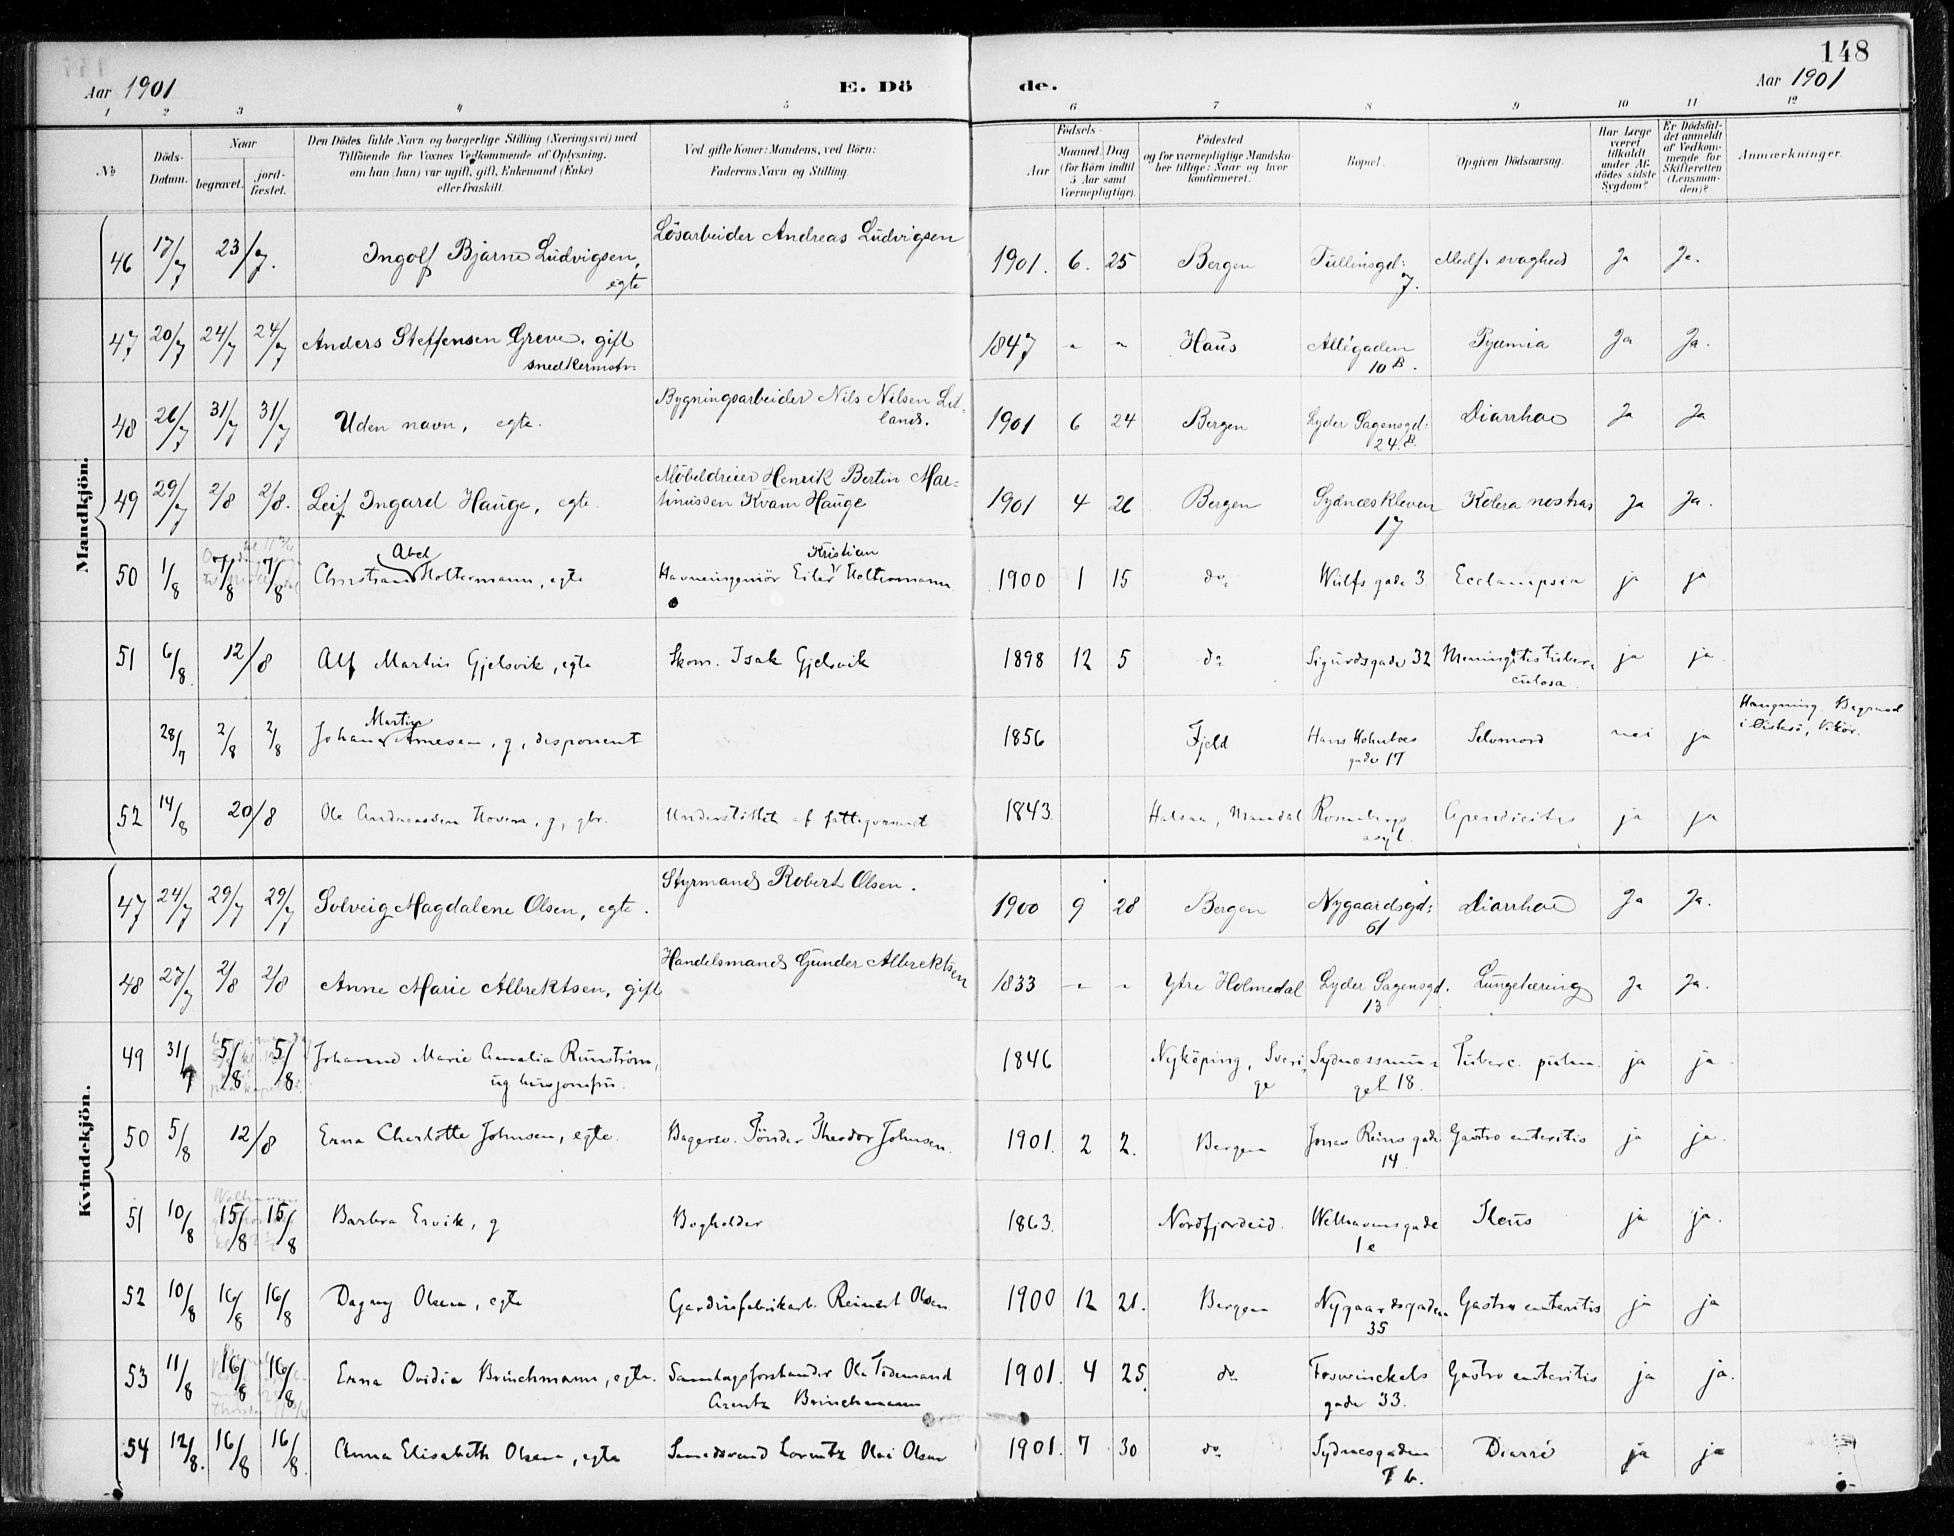 148
Aar 1901 E. Dö de. Aar 1901
1 2 3 4 5 6 7 8 9 10 11 12
№ Döds-Datum. Naar begravet. jord-fæstet. Den Dödes fulde Navn og borgerlige Stilling (Næringsvei) med Tilföiende for Voxnes Vedkommende af Oplysning, om han (hun) var ugift, gift, Enkemand (Enke) eller fraskilt. Ved gifte Koner: Mandens, ved Börn: Faderens Navn og Stilling. Födsels- Aar Maaned. Dag (for Börn indtil 5 Aar samt Værnepligtige). Födested og for værnepligtige Mandska-ber tillige: Naar og hvor konfirmeret. Bopæl. Opgiven Dödsaarsag. Har Læge været tilkaldt under Af-dödes sidste Sygdom? Er Dödsfal-det anmeldt af Vedkom-mende for Skifteretten (Lensman-den)? Anmærkninger.
Mandkjön.
46 17/7 23/7. Ingolf Bjarne Ludvigsen, egte Lösarbeider Andreas Ludvigsen 1901. 6. 25 Bergen Tullinsgd: 7. Medf. svaghed Ja Ja.
47 20/7 24/7 24/7 Anders Steffensen Greve, gift snedkermstr: 1847 " " Haus Allégaden 10 B. Pyæmia Ja Ja.
48 26/7 31/7 31/7 Uden navn, egte. Bygningsarbeider Nils Nilsen Lid-land. 1901 6 24 Bergen Lyder Sagensgd: 24 B. Diarrhoe Ja Ja
49 29/7 2/8 2/8. Leif Ingard Hauge, egte. Møbeldreier Henrik Bertin Mar-tinussen Kvam Hauge 1901 4 26 Bergen Sydneskleven 17 Kolera nostras Ja Ja.
50 1/8 7/8 7/8 Christian Abel Holtermann, egte Havneingeniör Eiler Kristian Holtermann 1900 1 15 do. Wulfs gade 3 Ecclampsia ja ja
51 6/8. 12/8 Alf Martin Gjelsvik, egte Skom. Isak Gjelsvik 1898 12 5 do Sigurdsgade 32 Meningitis tuber-culosa. ja ja
28/7 2/8 2/8 Johan Martin Arnesen, g, disponent 1856 Fjeld Hans Holmboes gade 17 Selvmord nei ja Hængning. Begravet i Östensö, Vikör.
52 14/8 20/8 Ole Andreassen Hoven, g, gbr. Understöttet af fattigvesenet 1843. Halsaa, Mandal Rosenbergs asyl. Apendicitis ja ja
Kvindekjön.
47 24/7 29/7 29/7 Solveig Magdalene Olsen, egte. Styrmand Robert Olsen. 1900 9 28 Bergen Nygaardsgd: 61 Diarrhoe Ja Ja.
48 27/7 2/8 2/8 Anne Marie Albrektsen, gift Handelsmand Gunder Albrektsen 1833 " " Ytre Holmedal Lyder Sagensgd. 13 Lungetæring Ja Ja.
49 31/7 5/8 5/8 Johanne Marie Amalia Runström, ug husjomfru. 1846 Nyköping, Sveri-ge Sydnessmu-get 18. Tuberc. pulm. ja ja
50 5/8 12/8 Erna Charlotte Johnsen, egte. Bagersv. Tönder Theodor Johnsen. 1901. 2 2. Bergen Jonas Reins gade 14. Gastro enteritis ja ja.
51 10/8 15/8 15/8 Barbra Ervik, g Bogholder 1863. Nordfjordeid. Welhavensgade 1 c Ileus ja ja.
52 10/8 16/8 16/8 Dagny Olsen, egte Gardinfabrikarb. Reinert Olsen 1900 12 21. Bergen Nygaardsgaden 35 Gastro enteritis ja ja
53 11/8 16/8 16/8 Erna Ovidia Brinchmann, egte. Samlagsforstander Ole Tidemand Arentz Brinchmann 1901. 4 25. do Foswinckels gade 33. Gastro enteritis ja ja.
54 12/8. 16/8 16/8. Anna Elisabeth Olsen, egte Smedsvend Lorentz Olai Olsen 1901. 7 30 do Sydnesgaden 7 b. Diarré ja ja